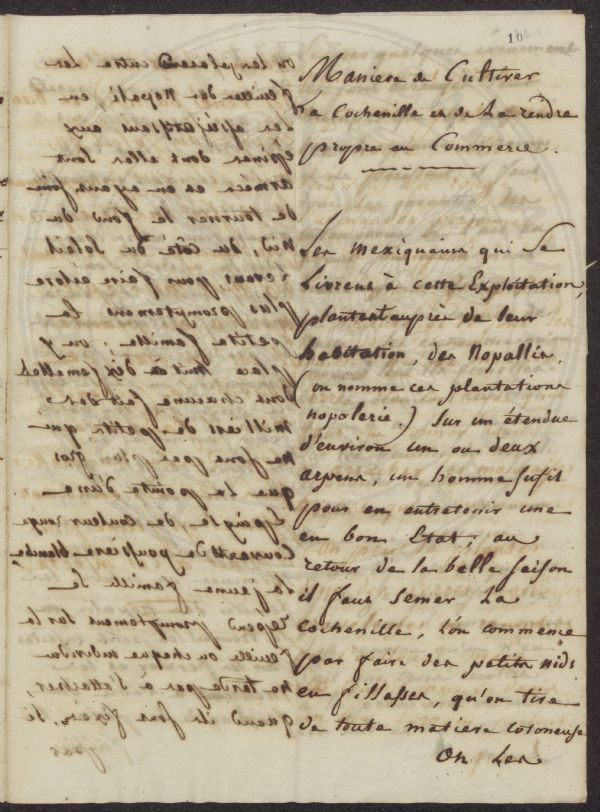 10
Maniere de Cultiver
la Cochenille et de la rendre
propre au Commerce.
Les mexiquains qui se
livrent à cette Exploitation,
plantent auprès de leur
habitation, des Nopallis,
(on nomme ces plantations
nopalerie.) Sur un étendue
d'environ un ou deux
arpens, un homme sufit
pour en entretenir une
en bon Etat; au
retour de la belle saison
il faut semer la
Cochenille, l'on commence
par faire des petits nids
en fillasses, qu'on tire
de toute matiere cotoneuse
On les
ou les places entre les
feuilles des Nopals, en
les assujetissant aux
épines dont elles sont
armées et en ayant soin
de tourner le fond du
nid, du côté du Soleil
levant, pour faire éclore
plus promptement la
petite famille; on y
place huit à dix femelles
dont chacune fait des
milliers de petits qui
ne sont pas plus gros
que la pointe d'une
Epingle, de couleur rouge
couverts de poussière blanche
la jeune famille se
répend promptement sur la
feuille ou chaque individu
ne tarde pas à s'attacher,
quand ils sont fixés, le